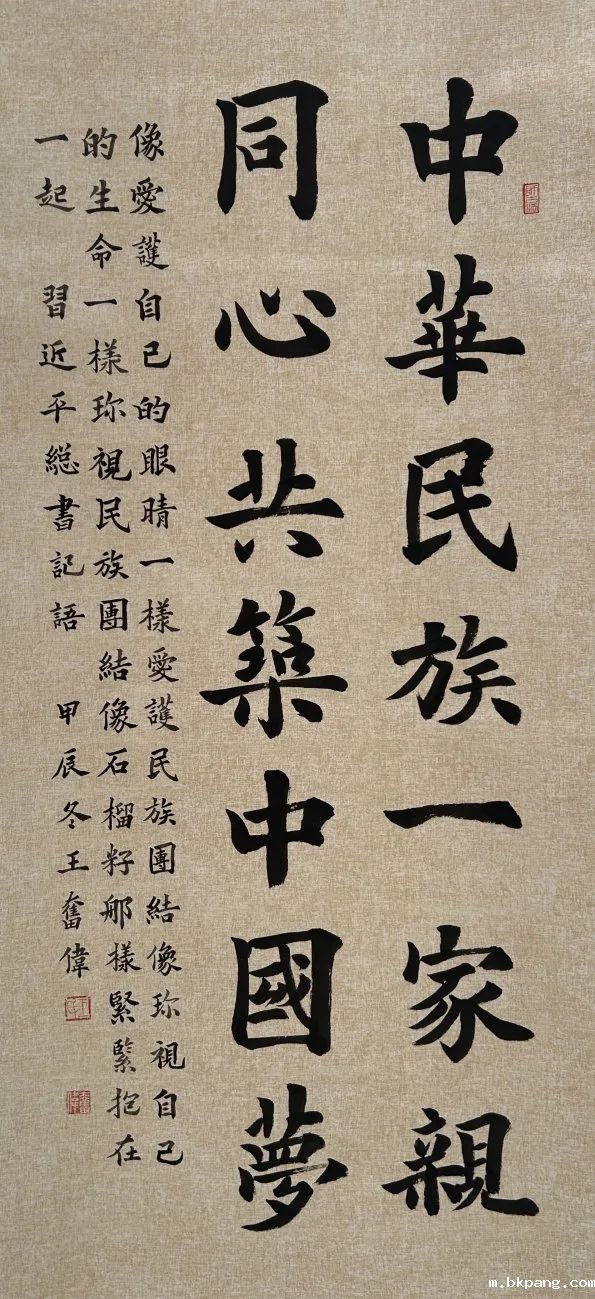 中華民族一家親
同心共築中國夢
像愛護自己的眼睛一樣愛護民族團結像珎視自己
的生命一樣珎視民族團結像石榴籽那樣緊緊抱在
一起 習近平總書記語 甲辰冬王奮偉
m.bkpang.com